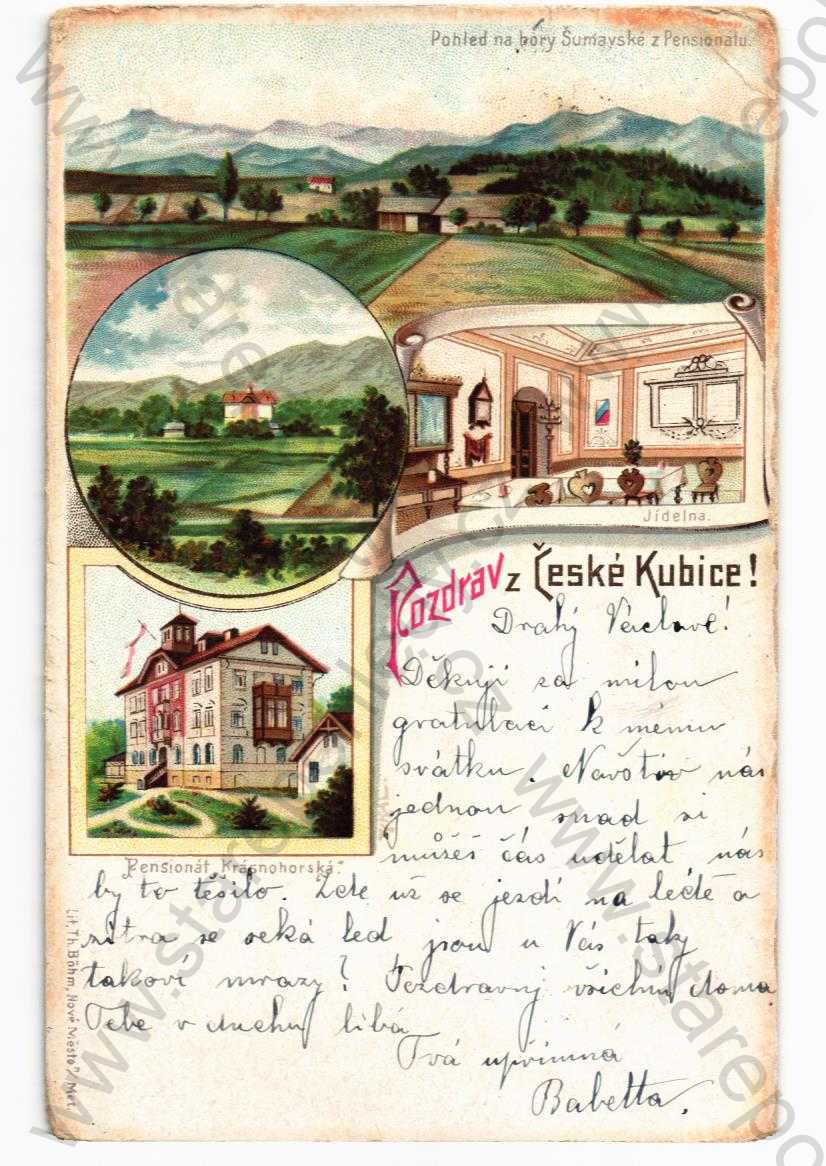 Pohled na hory Šumavské z Pensionátu.
Jídelna.
Pozdrav z České Kubice!
Drahý Václave!
Děkuji za milou
gratulaci k mému
svátku. Navštiv nás
jednou snad si
můžeš čas udělat nás
by to těšilo. Zde už se jezdí na ledě a
zítra se seká led jsou u Vás taky
takové mrazy? Pozdravuj všechny doma
Tebe v duchu líbá
Tvá upřímná
Babetta.
"Pensionát Krásnohorská."
Lit. Th. Böhm, Nové Město n/Met.
www.starepohlednice.cz